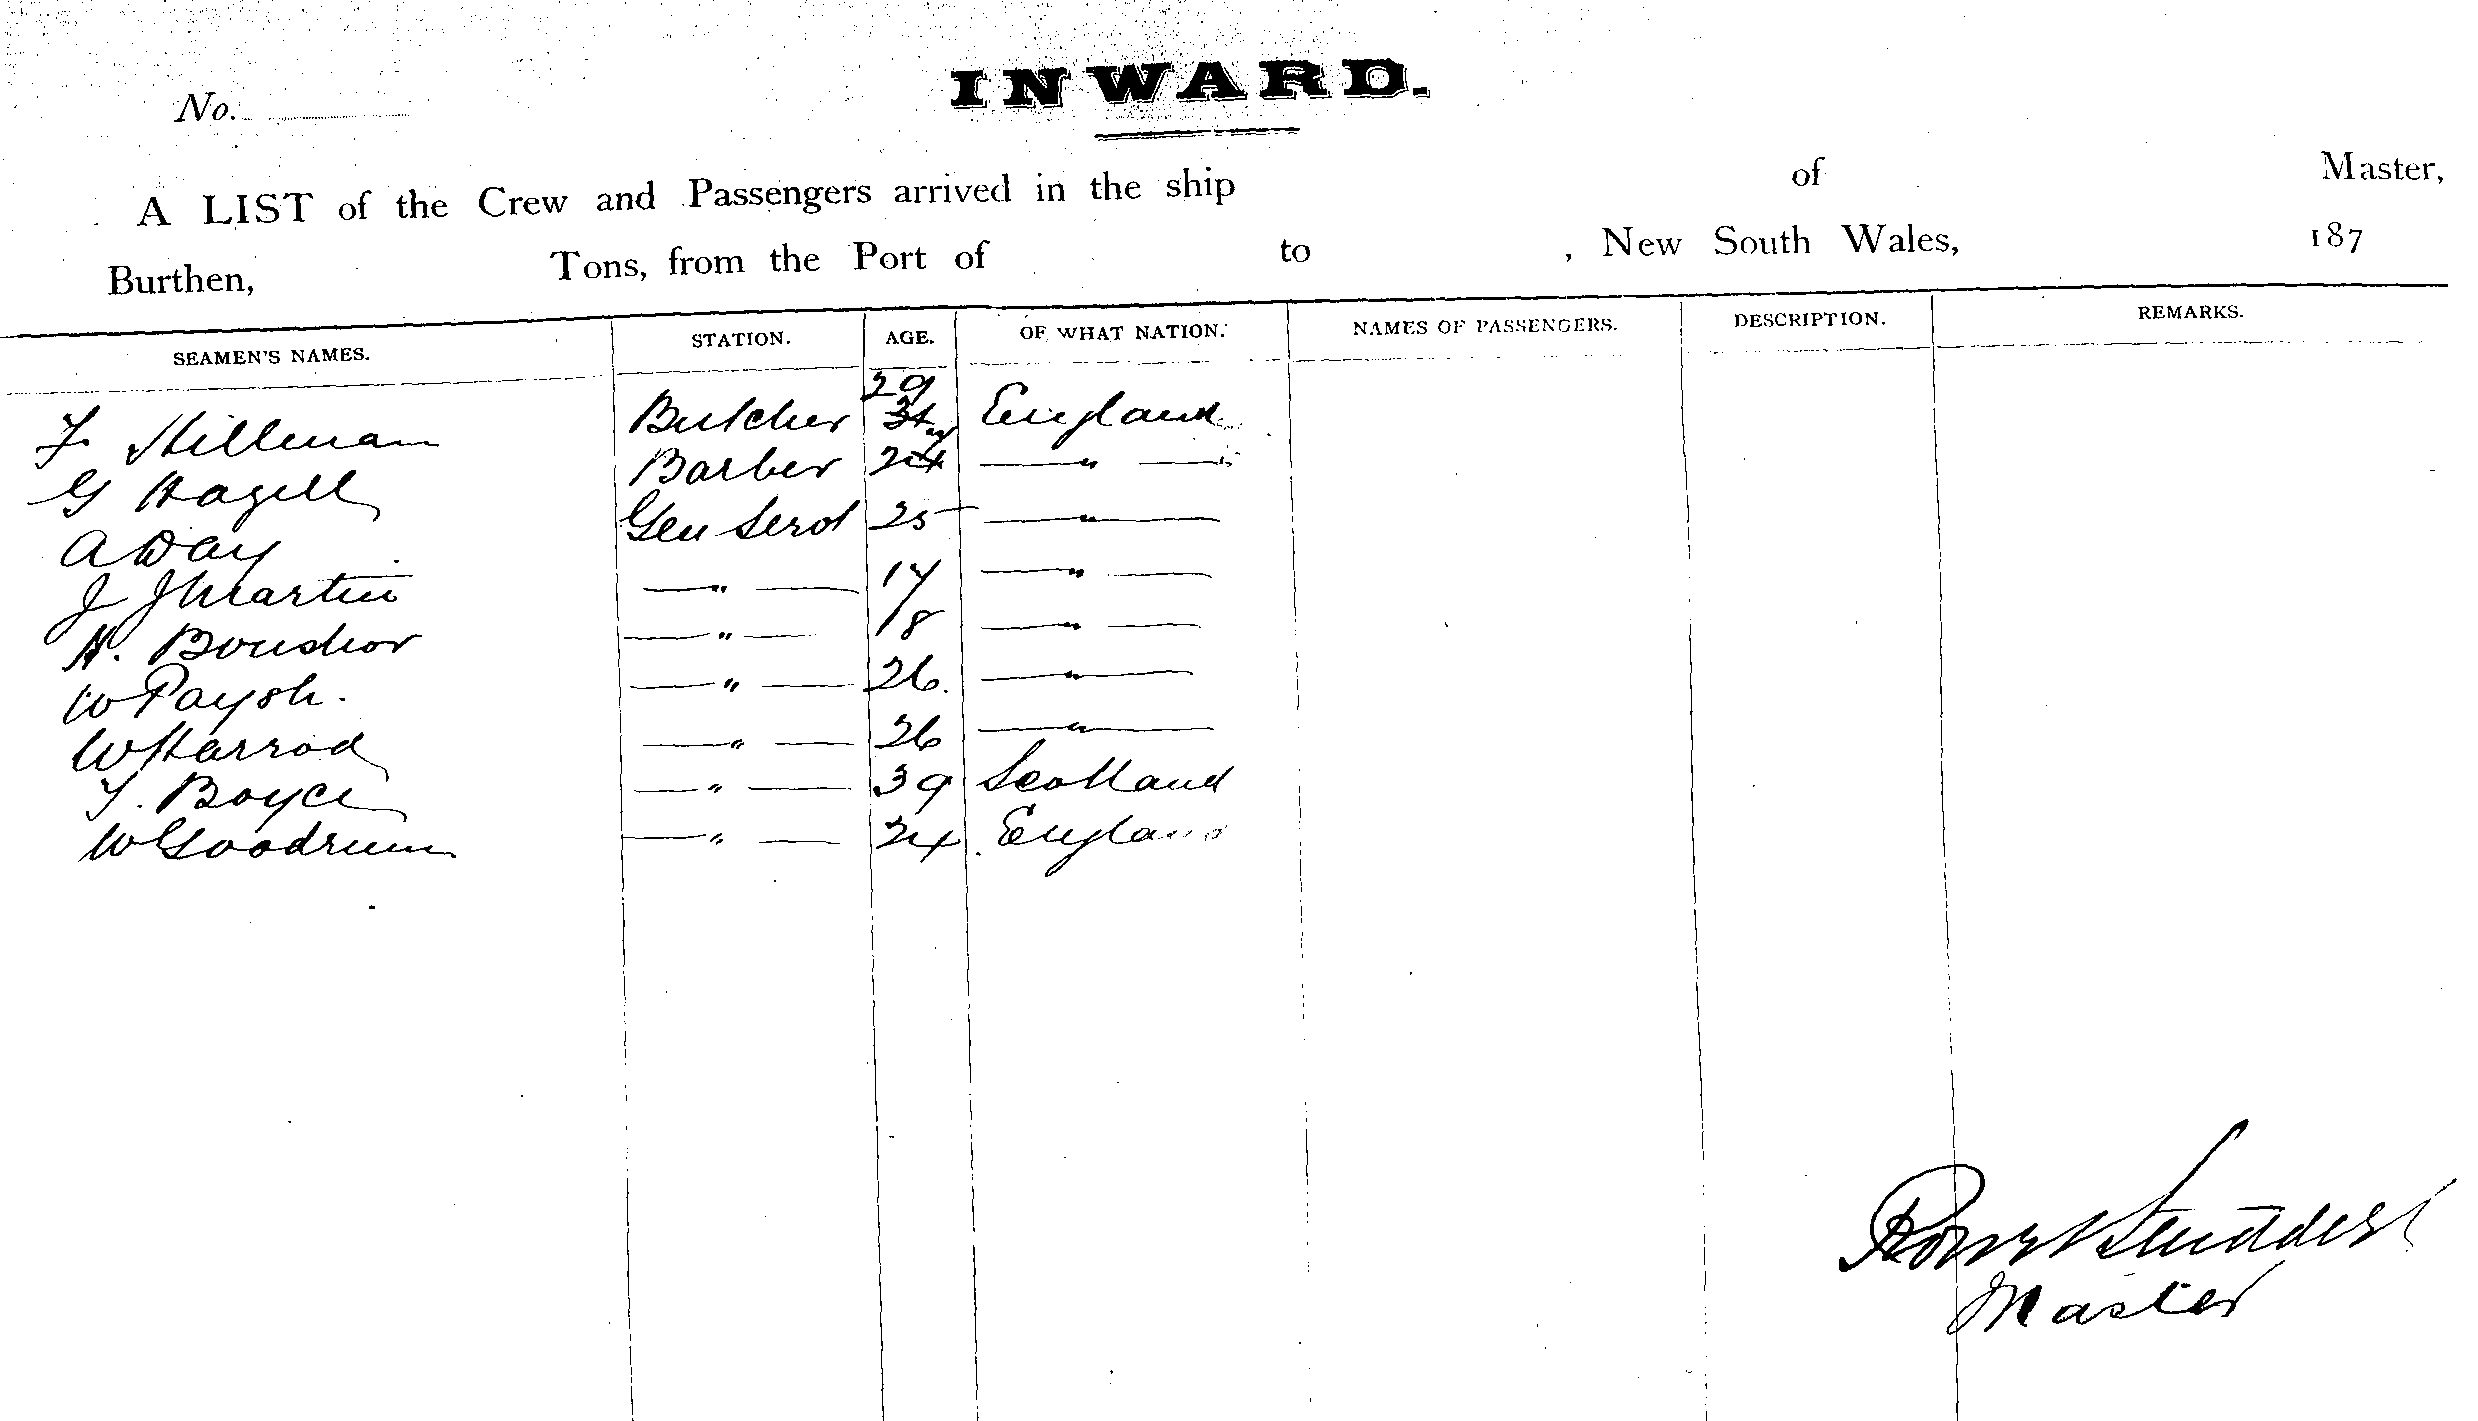 INWARD.
No.
A LIST of the Crew and Passengers arrived in the ship of Master,
Burthen, Tons, from the Port of to , New South Wales, 187
SEAMEN'S NAMES. STATION. AGE. OF WHAT NATION. NAMES OF PASSENGERS. DESCRIPTION. REMARKS.
29
F. Hillman Butcher England
G Hagell Barber 24 — " —
A Day Gen Servt 25 — " —
J J Martin — " — 17 — " —
H. — " — 18 — " —
W — " — 26. — " —
W Harrod — " — 26 — " —
T. Boyce — " — 39 Scotland
W Goodrum — " — 24 England
Master